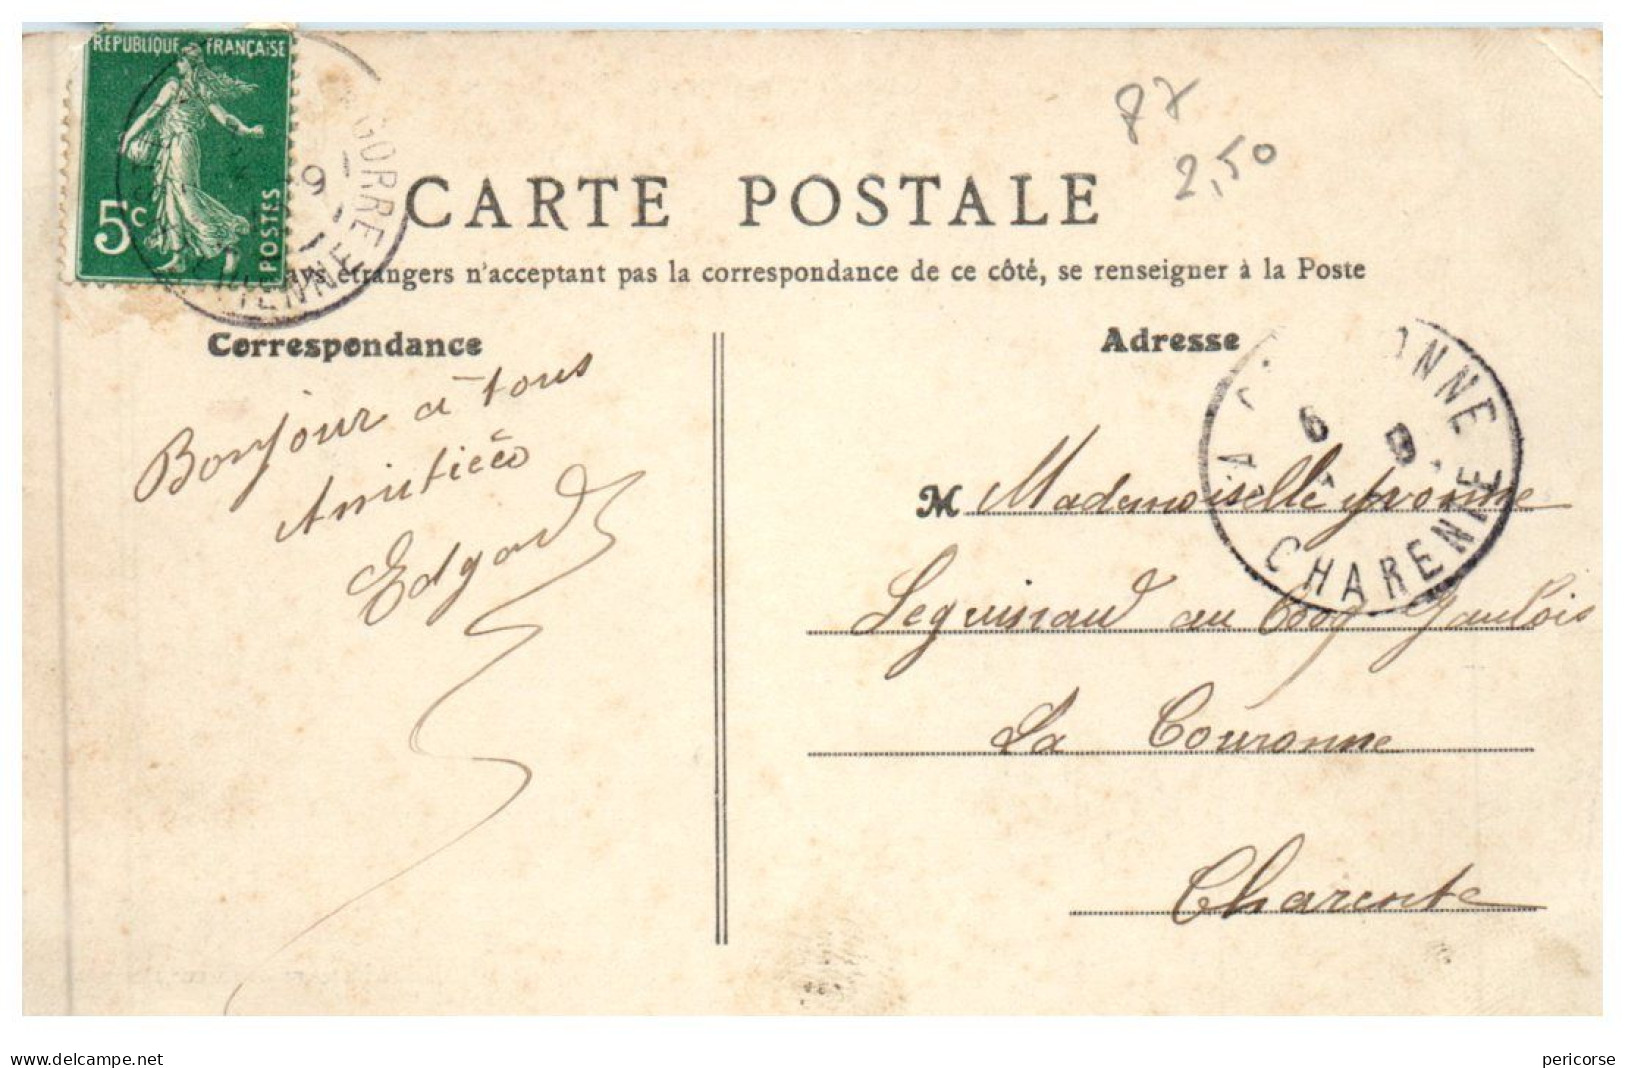 REPUBLIQUE FRANÇAISE
5c POSTES
GORRE
VIENNE
87
2,50
CARTE POSTALE
étrangers n'acceptant pas la correspondance de ce côté, se renseigner à la Poste
Correspondance
Adresse
Bonjour à tous
Amitiées
Edgard
CHARENTE
M Mademoiselle Yvonne
au Coq Gaulois
La Couronne
Charente
delcampe.net
pericorse